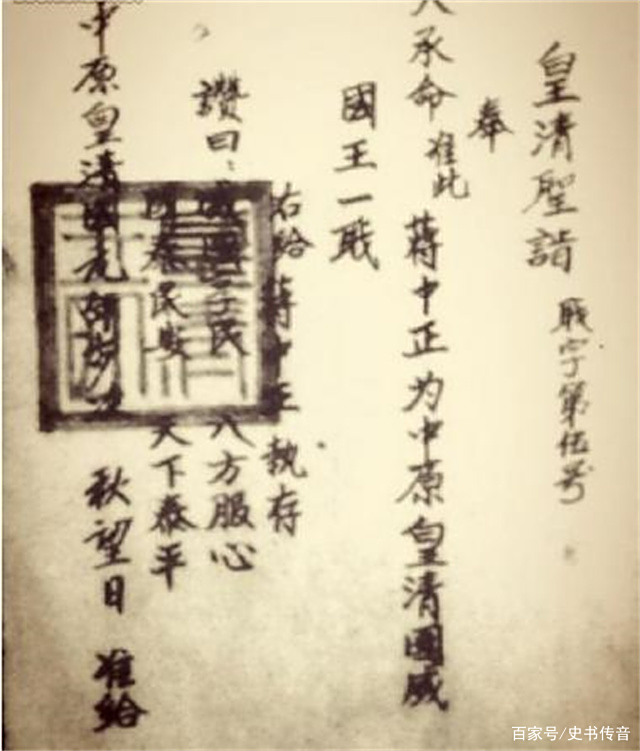 皇清聖詣
字第伍号
奉
承命 准此 蔣中正为中原皇清國威
國王一
右給蔣中正執存
讚曰： 國子民 八方服心
國泰民安 天下泰平
中原皇清國元 秋望日 准給
百家号/史书传音